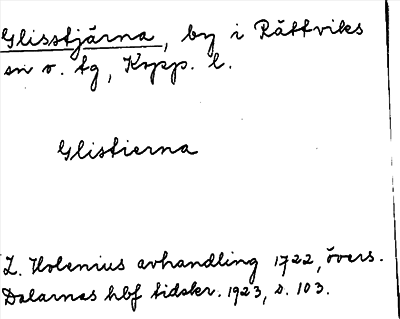 Glisstjärna, by i Rättviks
sn o. tg, Kopp. l.
Glistierna
Z. Holenius avhandling 1722, övers.
Dalarnas hbf tidskr. 1923, s. 103.